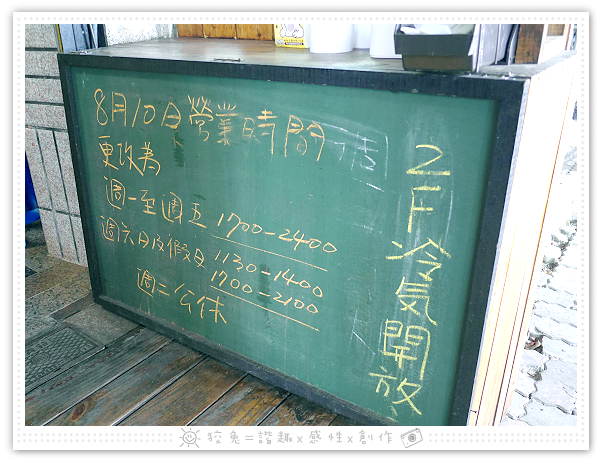 8月10日營業時間
更改為
週一至週五 1700-2400
週六日及假日 1130-1400
1700-2100
週二公休
2F冷気開放
狡兔=諧趣x感性x創作